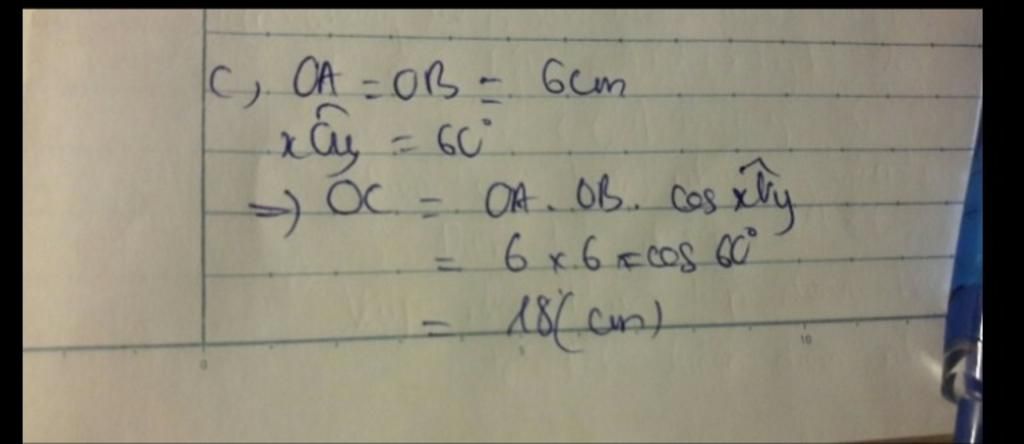 c, OA = OB = 6cm
xÔy = 60°
=> OC = OA. OB. cos xÔy
= 6 x 6 x cos 60°
= 18(cm)
0 5 10